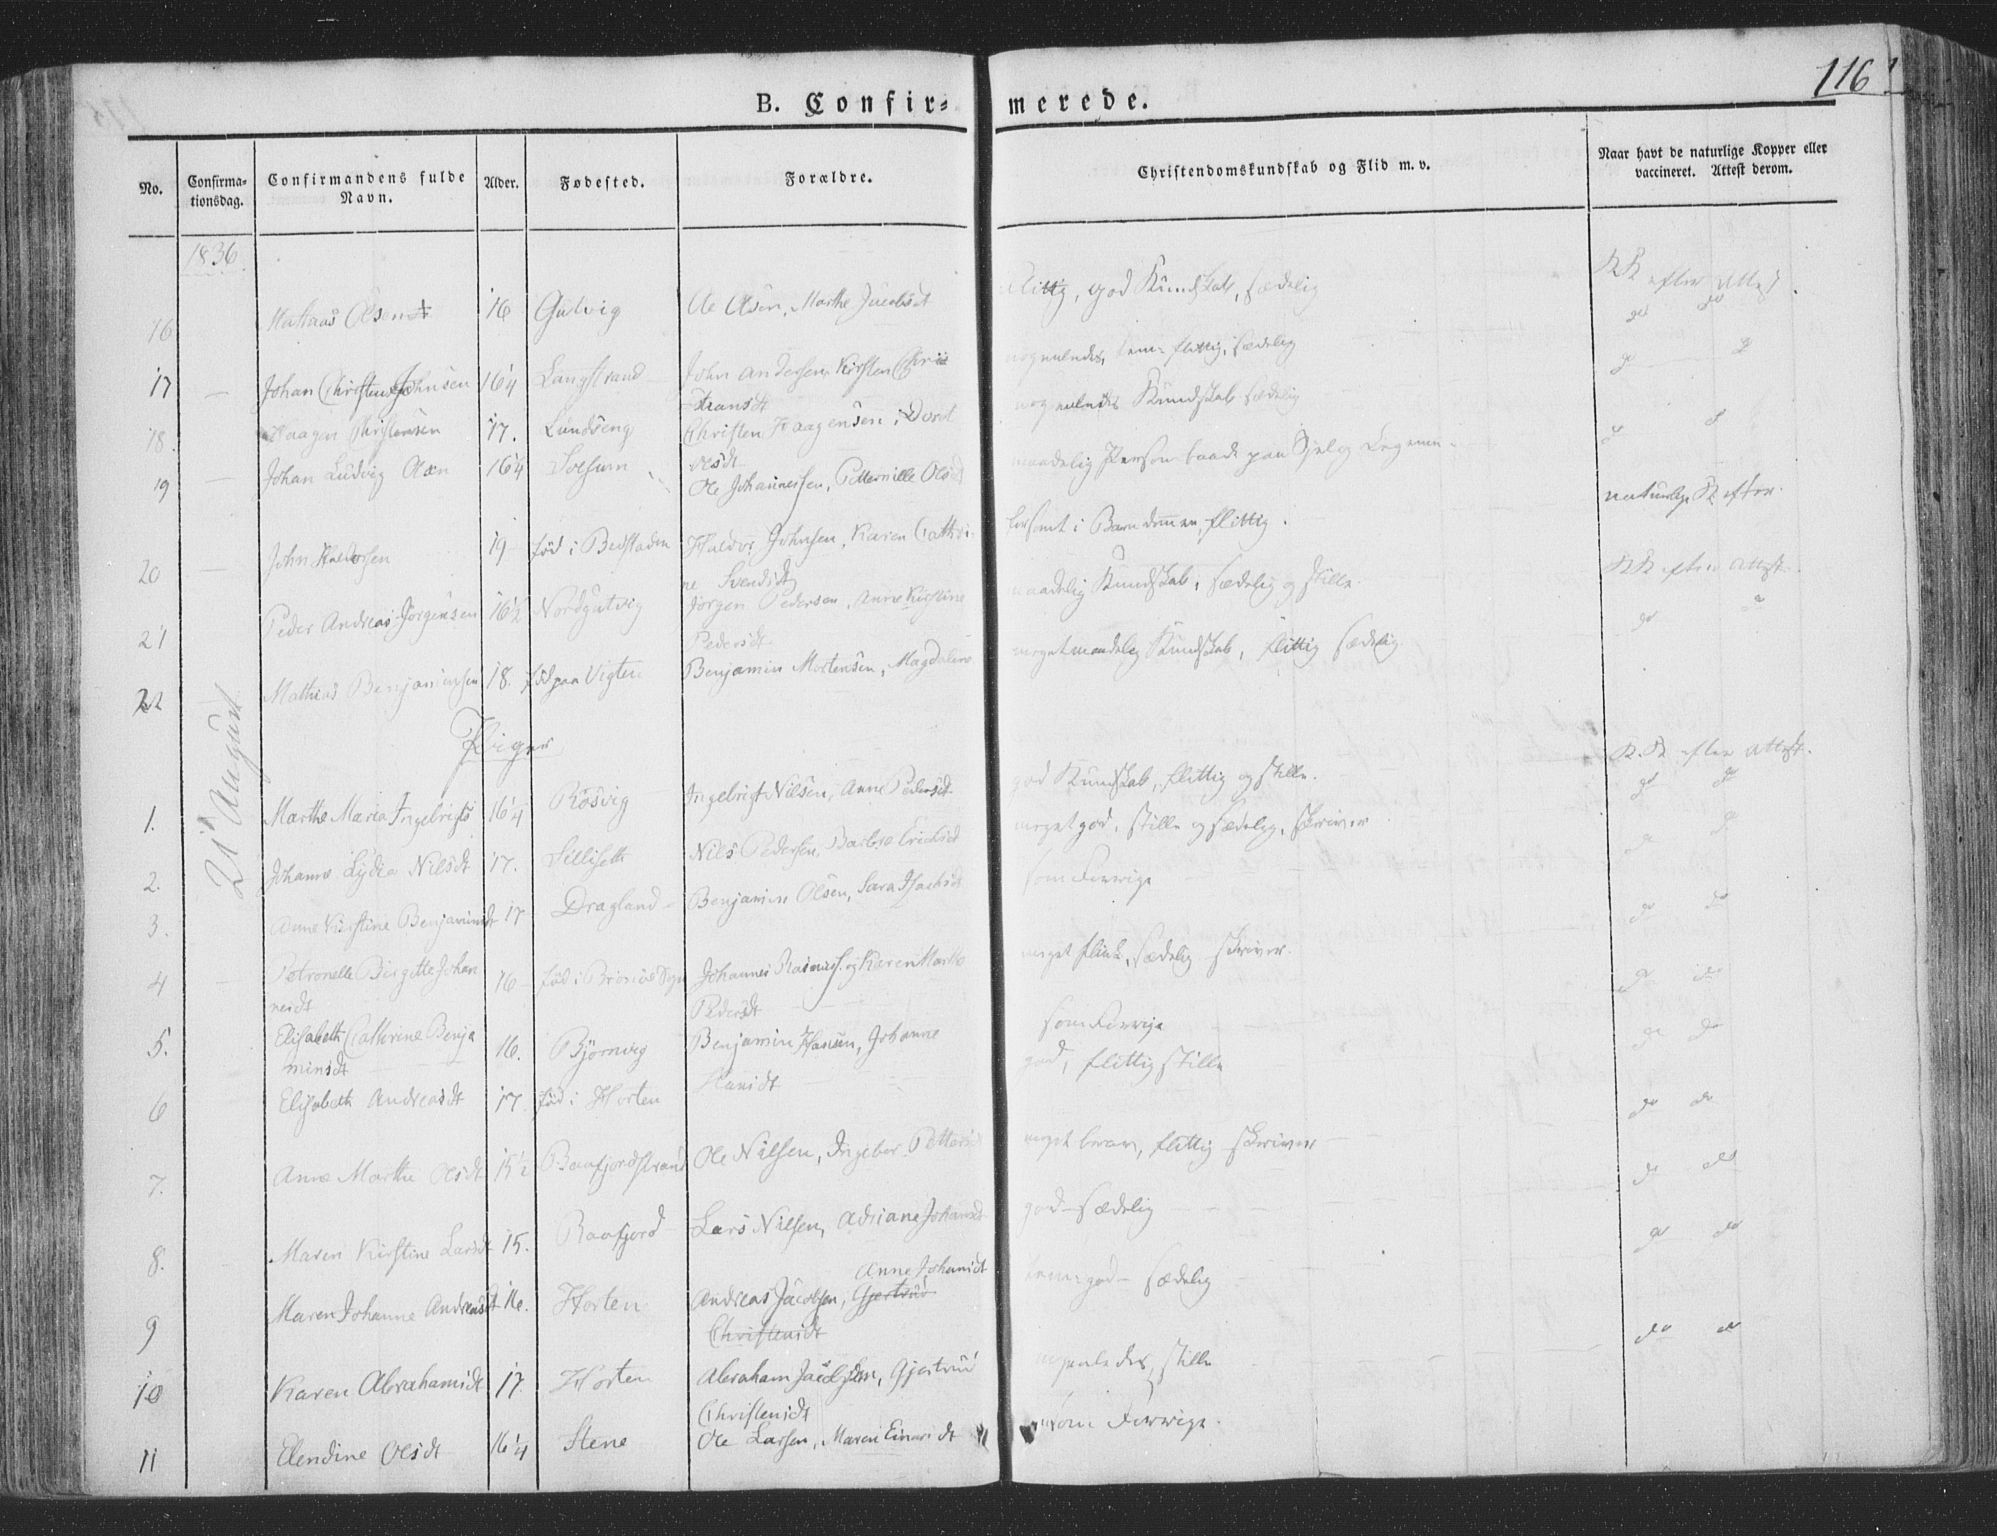 116
B. Confir= merede.
No. Confirma-tionsdag. Confirmandens fulde Navn. Alder. Fødested. Forældre. Christendomskundskab og Flid m. v. Naar havt de naturlige Kopper eller vaccineret. Attest derom.
1836
16 Olsen 16 Gutvig Ole Olsen, Marthe Jacobsdt Flittig, god Kundskab, sædelig KK efter Attest
17 Johan Christensen Johnsen 16¼ Langstrand John Andersen, Kirsten Chris flittig, sædelig do do
transdt
18. Haagen Christensen 17. Lundseng Christen Haagensen, Dorot Kundskab sædelig
Olsdt
19 Johan Ludvig Olsen 16¼ Solsum Ole Johannessen, Petternille Olsd maadelig Person baade paa Sjel og Legeme
20 John Haldorsen 19 fød i Haldor Johnsen, Karen Cathri- forsømt i Barndommen, flittig. naturlige K efter
ne Svendsdt
21 Peder Andreas Jörgensen 16½ Nordgutvig Jörgen Pedersen, Anne Kirstine maadelig Kundskab, sædelig og stille KK efter Attest
Pedersdt
22 Mathias Benjaminsen 18. fød paa Vigten Benjamin Mortensen, Magdalene meget maadelig Kundskab, flittig sædelig
21 August
Piger
1. Marthe Maria Ingebrigts 16¼ Rösvig Ingebrigt Nilsen, Anne Pedersdt god Kundskab, flittig og stille. K.K efter Attest.
2. Johanne Lydia Nilsdt 17. Silliseth Nils Pedersen, Barbro Ericksdt meget god, stille og sædelig, skriver do do
3. Anne Kirstine Benjaminsdt 17 Dragland Benjamin Olsen, Sara Isachsdt som Forrige
4 Petronelle Birgitte Johan 16 fød i Brönö Sogn Johannes Rasmuss. og Karen Marthe meget flink, sædelig skriver. do do
nesdt Pedersdt
5. Elisabeth Cathrine Benja 16. Björnvig Benjamin Hansen, Johanne som Forrige do do
minsdt Hansdt
6 Elisabeth Andreasdt 17. fød i Horten god, flittig stille do do
7. Anne Marthe Olsdt 15½ Raafjordstrand Ole Nilsen, Ingebor Petters meget brav, flittig skriver do do
8. Maren Kirstine Larsdt 15. Raafjord Lars Nilsen, Adriane Johansdt god sædelig do do
Anne Johansdt
9 Maren Johanne Andreasdt 16. Horten Andreas Jacobsen, Gjertrud god sædelig do do
Christensdt
10 Karen Abrahamsdt 17. Horten Abraham Jacobsen, Gjertrud nogenledes, stille do do
Christensdt
11 Elendine Olsdt 16¼ Stene Ole Larsen, Maren Einersdt som Forrige.